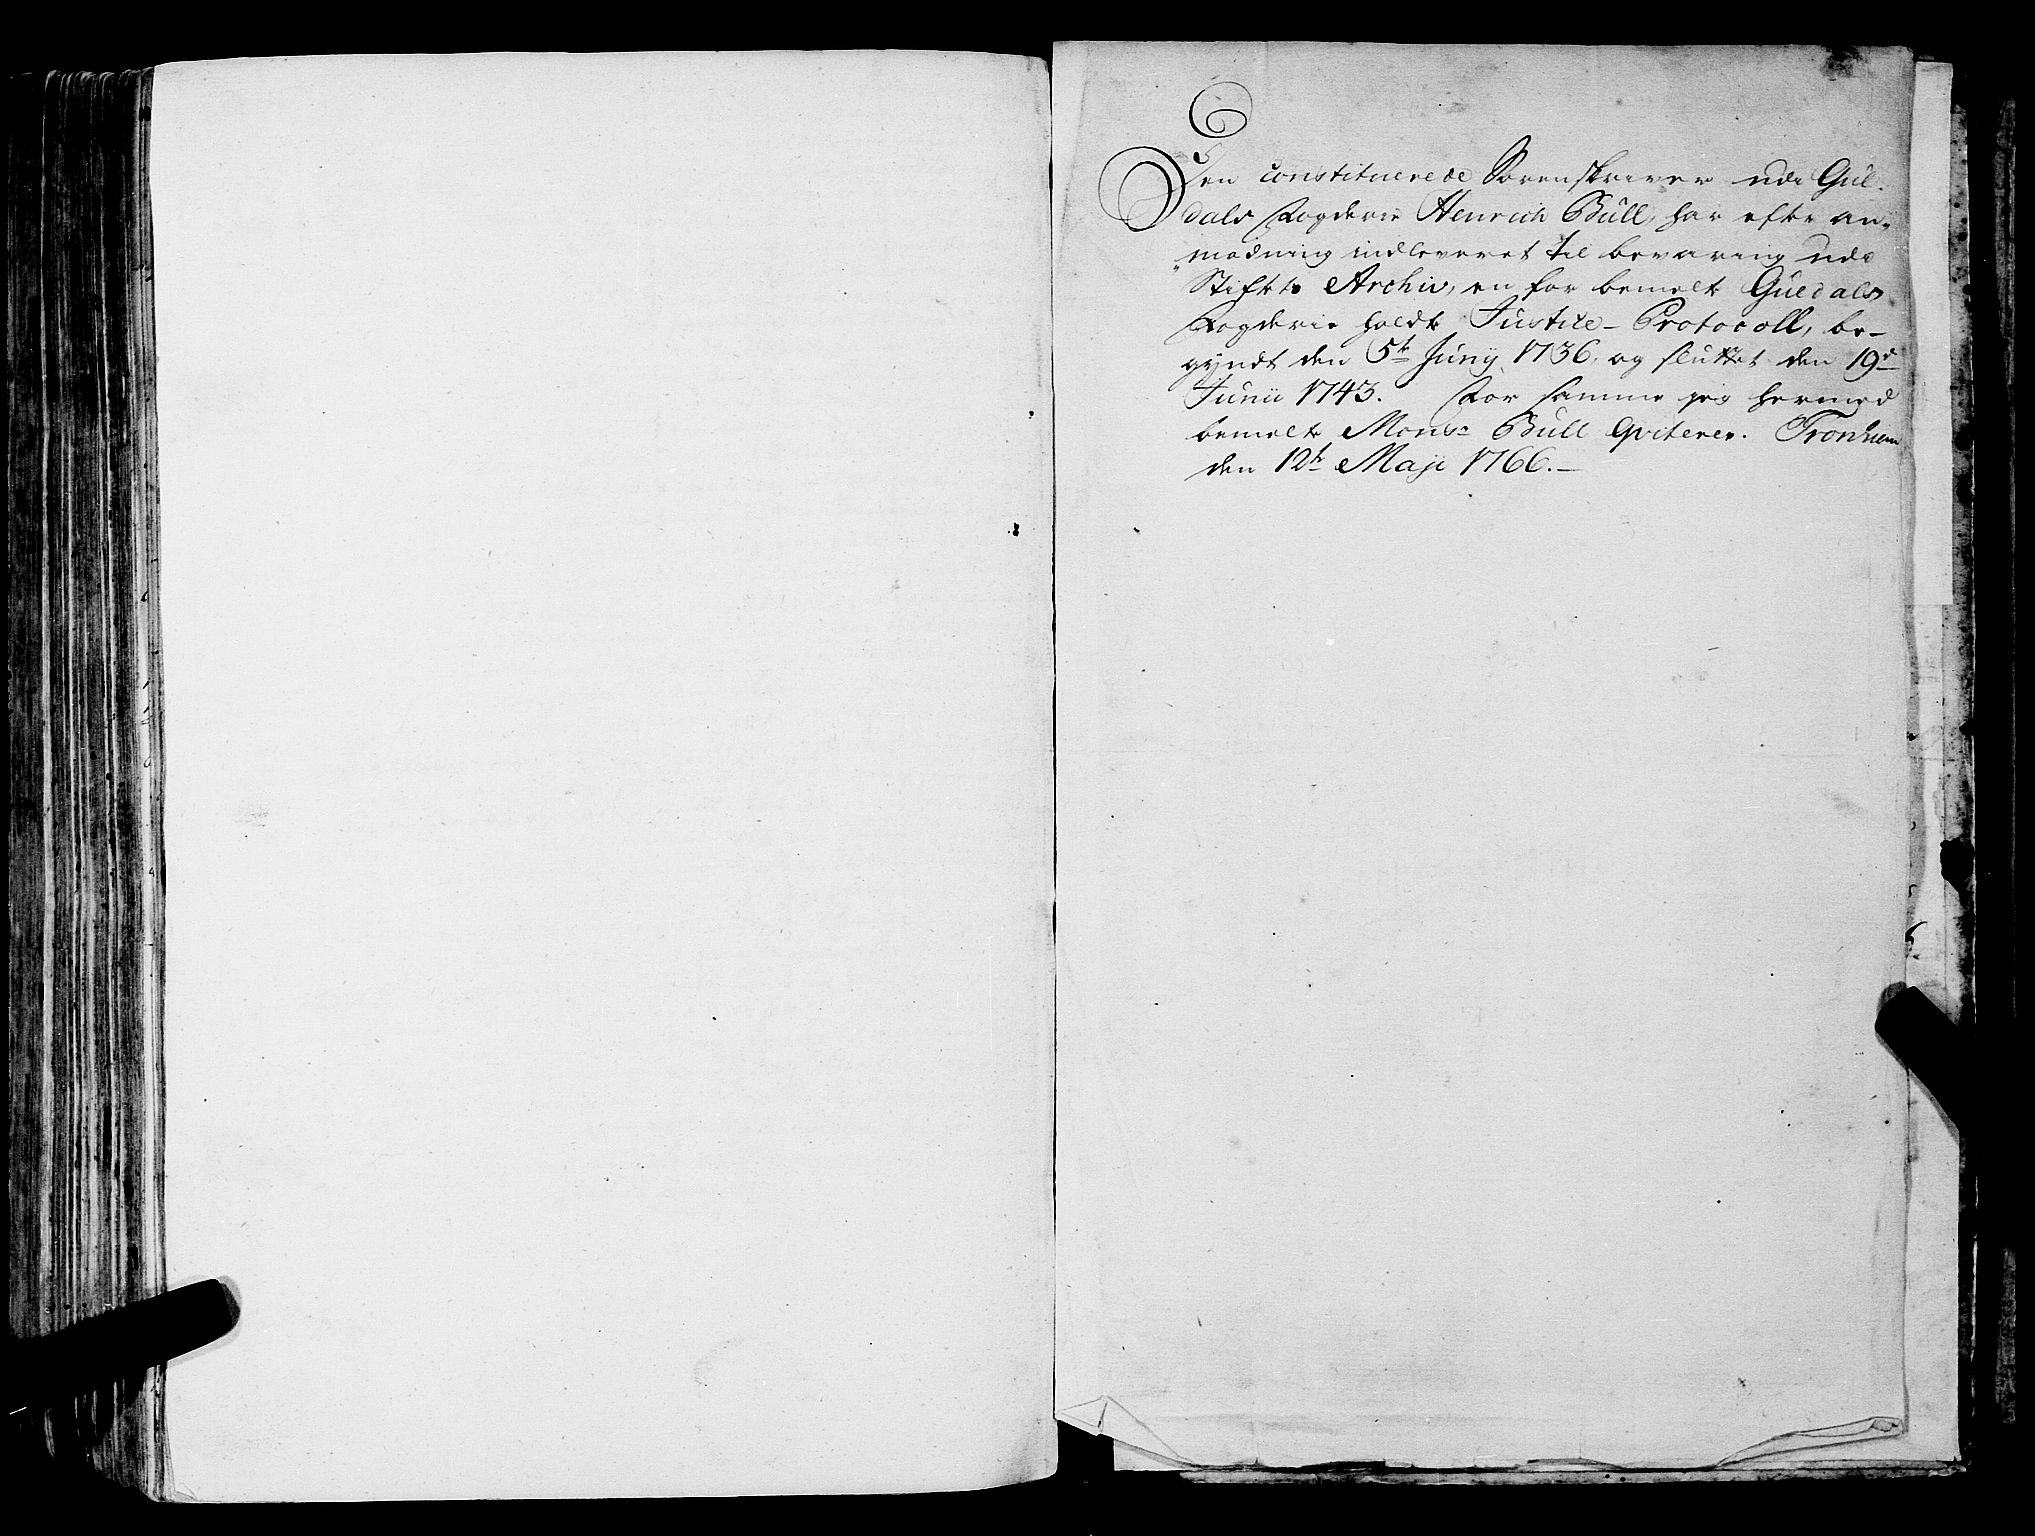 Den constituerede Sorenskriver udi Gul-
dals Fogderie Henrich Büll, har efter an-
modning indleveret til bevaring udi
Stifts Archiv, en for bemelte Guldals
Fogderie holdte Justice-Protocoll, be-
gyndt den 5te Junij 1736, og sluttet den 19de
Junii 1743. For samme jeg hermed
bemelte Monsr Büll qviterer. Tronhiem
den 12te Maji 1766.